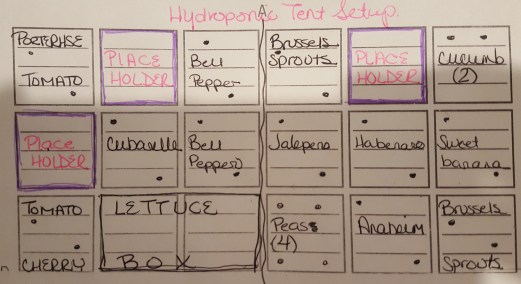 Hydroponic Tent Setup.
PORTERHSE
TOMATO
PLACE
HOLDER
Bell
Pepper
Brussels
Sprouts
PLACE
HOLDER
Cucumb
(2)
Place
HOLDER
Cubanelle
Bell
Pepper
Jalepeno
Habenaro
Sweet
banana
TOMATO
CHERRY
LETTUCE
BOX
Peas
(4)
Anaheim
Brussels
Sprouts